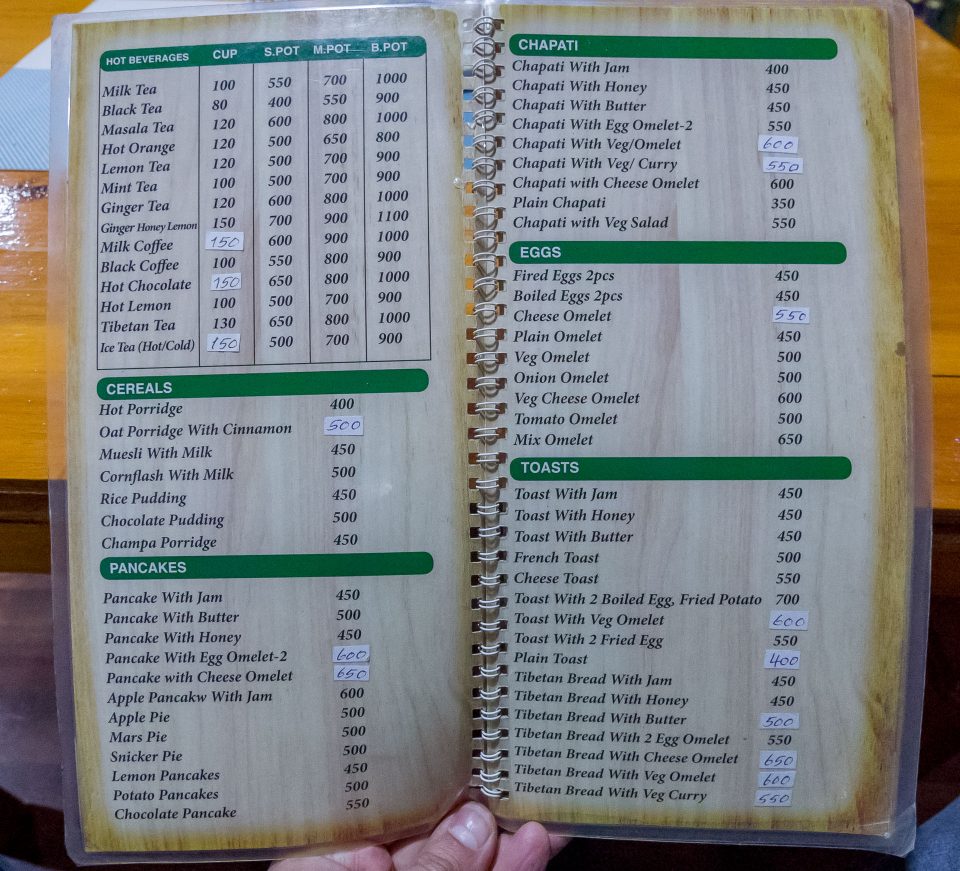 HOT BEVERAGES CUP S.POT M.POT B.POT
Milk Tea 100 550 700 1000
Black Tea 80 400 550 900
Masala Tea 120 600 800 1000
Hot Orange 120 500 650 800
Lemon Tea 120 500 700 900
Mint Tea 100 500 700 900
Ginger Tea 120 600 800 1000
Ginger Honey Lemon 150 700 900 1100
Milk Coffee 150 600 900 1000
Black Coffee 100 550 800 900
Hot Chocolate 150 650 800 1000
Hot Lemon 100 500 700 900
Tibetan Tea 130 650 800 1000
Ice Tea (Hot/Cold) 150 500 700 900
CEREALS
Hot Porridge 400
Oat Porridge With Cinnamon 500
Muesli With Milk 450
Cornflash With Milk 500
Rice Pudding 450
Chocolate Pudding 500
Champa Porridge 450
PANCAKES
Pancake With Jam 450
Pancake With Butter 500
Pancake With Honey 450
Pancake With Egg Omelet-2 600
Pancake with Cheese Omelet 650
Apple Pancakw With Jam 600
Apple Pie 500
Mars Pie 500
Snicker Pie 500
Lemon Pancakes 450
Potato Pancakes 500
Chocolate Pancake 550
CHAPATI
Chapati With Jam 400
Chapati With Honey 450
Chapati With Butter 450
Chapati With Egg Omelet-2 550
Chapati With Veg/Omelet 600
Chapati With Veg/ Curry 550
Chapati with Cheese Omelet 600
Plain Chapati 350
Chapati with Veg Salad 550
EGGS
Fired Eggs 2pcs 450
Boiled Eggs 2pcs 450
Cheese Omelet 550
Plain Omelet 450
Veg Omelet 500
Onion Omelet 500
Veg Cheese Omelet 600
Tomato Omelet 500
Mix Omelet 650
TOASTS
Toast With Jam 450
Toast With Honey 450
Toast With Butter 450
French Toast 500
Cheese Toast 550
Toast With 2 Boiled Egg, Fried Potato 700
Toast With Veg Omelet 600
Toast With 2 Fried Egg 550
Plain Toast 400
Tibetan Bread With Jam 450
Tibetan Bread With Honey 450
Tibetan Bread With Butter 500
Tibetan Bread With 2 Egg Omelet 550
Tibetan Bread With Cheese Omelet 650
Tibetan Bread With Veg Omelet 600
Tibetan Bread With Veg Curry 550